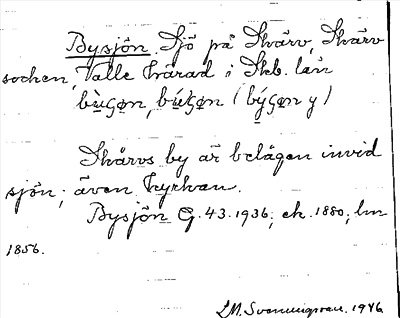 Bysjön. Sjö på Skärv, Skärv
socken, Valle härad i Skb. län
bu̱çøn, bu̱çøn (býçøn y)
Skärvs by är belägen invid
sjön; även kyrkan.
Bysjön G. 43. 1936; ek. 1880; lm
1856.
L.M. Svenungsson. 1946